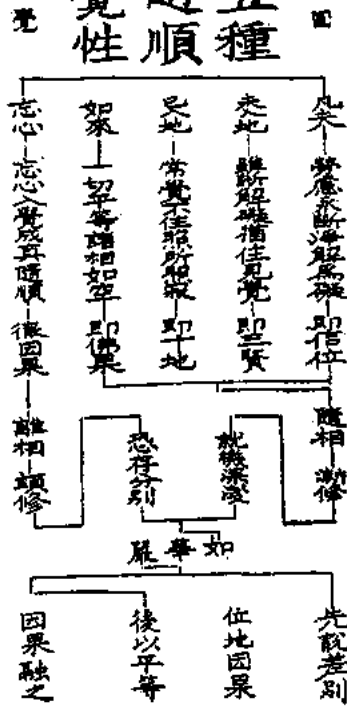 圓
五種
隨順
覺性
覺
凡夫 勞慮永斷淨解為礙 即信位
未地 雖斷解礙猶住見覺 即三賢
已地 常覺不住照所照寂 即十地
如來 一切平等諸相如空 即佛果
忘心 忘心入覺成真隨順 徹因果
隨相 漸修
就機深淺
恐存分別
離相 頓修
如華嚴
先說差別
位地因果
後以平等
因果融之